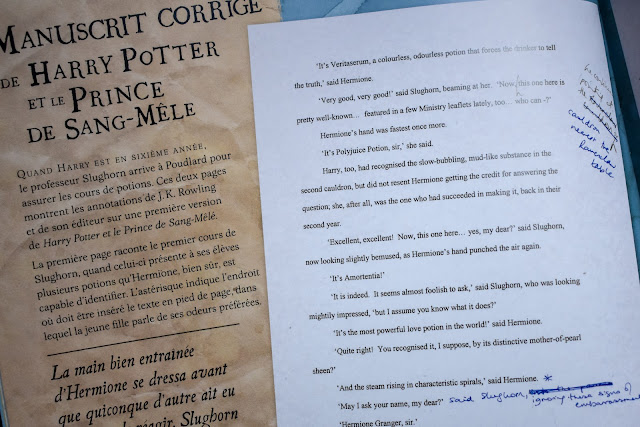 MANUSCRIT CORRIGÉ
DE HARRY POTTER
ET LE PRINCE
DE SANG-MÊLÉ
QUAND HARRY EST EN SIXIÈME ANNÉE,
le professeur Slughorn arrive à Poudlard pour
assurer les cours de potions. Ces deux pages
montrent les annotations de J.K. Rowling
et de son éditeur sur une première version
de Harry Potter et le Prince de Sang-Mêlé.
La première page raconte le premier cours de
Slughorn, quand celui-ci présente à ses élèves
plusieurs potions qu'Hermione, bien sûr, est
capable d'identifier. L'astérisque indique l'endroit
où doit être inséré le texte en pied de page, dans
lequel la jeune fille parle de ses odeurs préférées.
La main bien entraînée
d'Hermione se dressa avant
que quiconque d'autre ait eu
Slughorn
'It's Veritaserum, a colourless, odourless potion that forces the drinker to tell
the truth,' said Hermione.
'Very good, very good!' said Slughorn, beaming at her. 'Now, this one here is
pretty well-known... featured in a few Ministry leaflets lately, too... who can –?'
Hermione's hand was fastest once more.
'It's Polyjuice Potion, sir,' she said.
Harry, too, had recognised the slow-bubbling, mud-like substance in the
second cauldron, but did not resent Hermione getting the credit for answering the
question; she, after all, was the one who had succeeded in making it, back in their
second year.
'Excellent, excellent! Now, this one here... yes, my dear?' said Slughorn,
now looking slightly bemused, as Hermione's hand punched the air again.
'It's Amortentia!'
'It is indeed. It seems almost foolish to ask,' said Slughorn, who was looking
mightily impressed, 'but I assume you know what it does?'
'It's the most powerful love potion in the world!' said Hermione.
'Quite right! You recognised it, I suppose, by its distinctive mother-of-pearl
sheen?'
'And the steam rising in characteristic spirals,' said Hermione. *
'May I ask your name, my dear?' said Slughorn, ignoring these signs of
embarrassment
'Hermione Granger, sir.'
cauldron
table